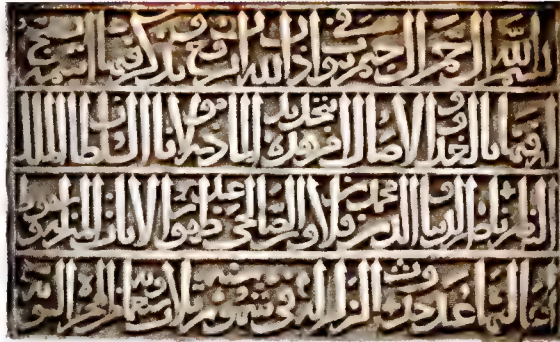 بسم الله الرحمن الرحيم في بيوت اذن الله ان ترفع ويذكر فيها اسمه يسبح
له فيها بالغدو والاصال امر بتجديد هذه الماذنة مولانا السلطان الملك
الناصر ناصر الدنيا والدين محمد بن قلاوون الصالحي ظهور الايات المنزلة
عند حدوث الزلزلة في شهور سنة ثلاث وسبعمائة للهجرة النبوية